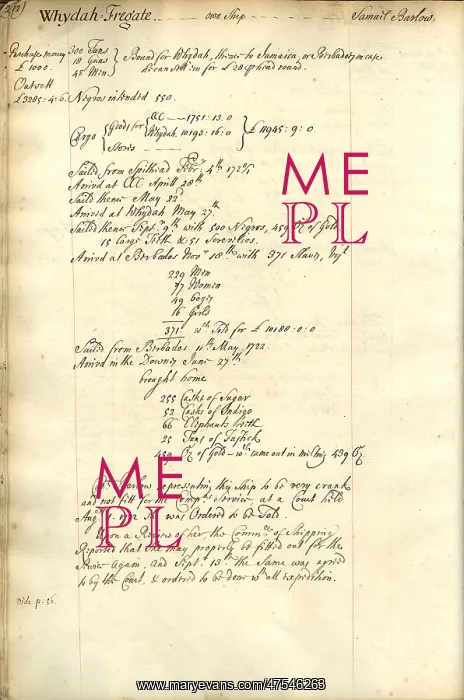 Whydah-Fregate own Ship Samuel Barlow.
Purchase money
£ 1000.
Outsett
£3285:4:6.
300 Tans
18 Guns
48 Men
Bound for Whydah, thence to Jamaica, or Barbados in case
he can sell 'em for £ 28 head round.
Negros intended 550.
Cargo Goods for
1751:13:0
Whydah 10193:16:0
Stores
£ 11945:9:0.
Sailed from Spithead Febry 4th 172
Arived at April 28th
Sailed thence May 22
Arived at Whydah May 27th
Sailed thence Sept. 9th with 500 Negros, 459 Oz of Gold
15 Large Teeth & 51
Arived at Barbados Novr 18th with 371 Slaves, Vizt
239 Men
77 Women
49 Boys
16 Girls
371 wch Sold for £ 10188:0:0
Sailed from Barbados 11th May, 1722.
Arived in the Downes June 27th
brought home
255 Casks of Sugar
52 Casks of Indigo
66 Elephants teeth
25 Tuns of Fustick
459 Oz of Gold - wch came out in melting 439 Oz.
Barlow representing this Ship to be very crank
and not fitt for the Service, at a Court held
Augt 1722 She was Ordered to be Sold.
Upon a Review of her, the Commee of Shipping
Reported that She may properly be fitted out for the
Service again, and Sept. 13th the Same was agreed
to by the Court, & ordered to be done wth all expedition.
Vide p: 56.
ME
PL
ME
PL
www.maryevans.com/47546263